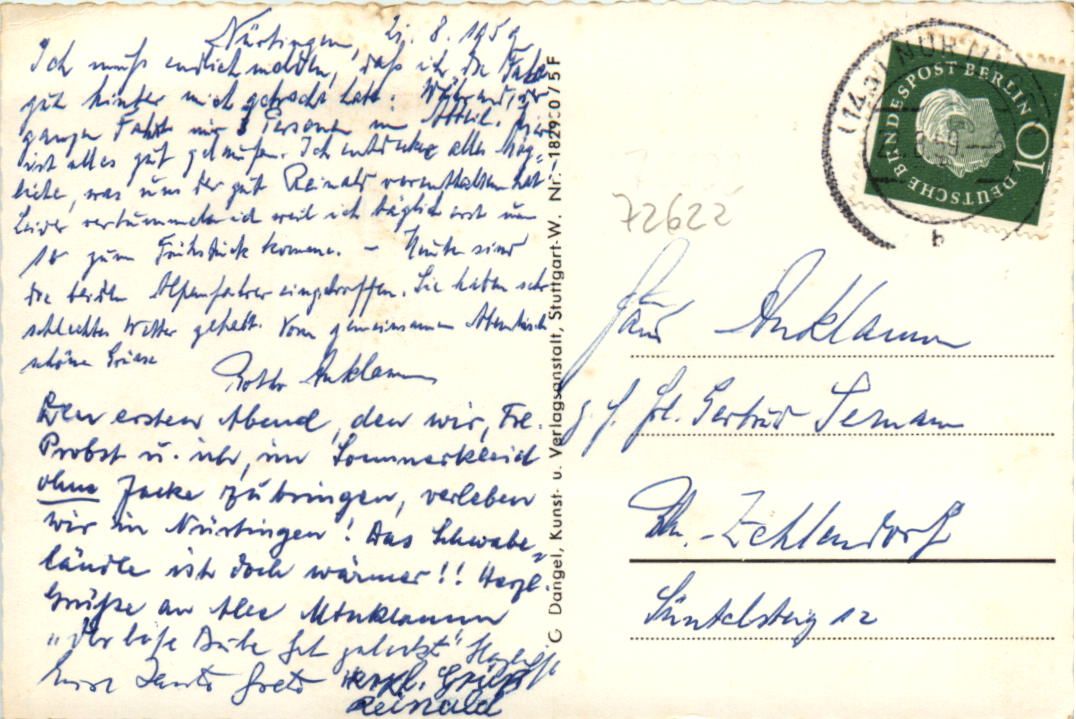 Nürtingen, 21. 8. 1959
Ich muß endlich melden, daß ich die Fahrt
gut hinter mich gebracht habe. Während der
ganzen Fahrt nur 3 Personen im Abteil. Hier
ist alles gut gelaufen. Ich entdecke alles Mög-
liche, was uns der gute Reinald vorenthalten hat.
Leider ich weil ich täglich erst um
10 zum Frühstück komme. – Heute sind
die beiden Alpenfahrer eingetroffen. Sie haben sehr
schlechtes Wetter gehabt. Vom gemeinsamen Abendtisch
schöne Grüsse
Anklamm
Den ersten Abend, den wir, Frl.
Probst u. ich, im Sommerkleid
ohne Jacke zubringen, verleben
wir in Nürtingen! Das Schwabe-
ländle ist doch wärmer!! Herzl.
Grüße an Alle
"Der böse Bube hat " Herzlichst
Eure Tante Grete Herzl. Grüße
Reinald
C. Dangel, Kunst- u. Verlagsanstalt, Stuttgart-W. Nr. 182930/5 F
(14a) NÜR
DEUTSCHE BUNDESPOST BERLIN
10
b
72622
Frau Anklamm
Frl. Gertrud
Bln.-Zehlendorf
Süntelsteig 12